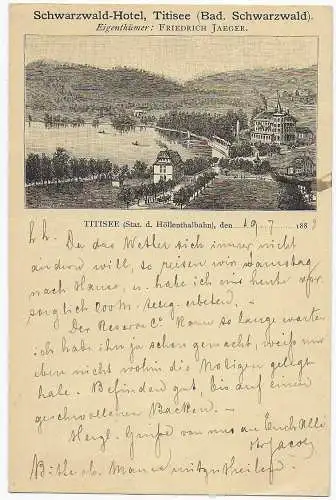 Schwarzwald-Hotel, Titisee (Bad. Schwarzwald).
Eigenthümer: FRIEDRICH JAEGER.
TITISEE (Stat. d. Höllenthalbahn), den 19. 7. 188
Da das Wetter sich immer nicht
ändern will, so reisen wir
nach Hause, u. habe ich uns heute vor-
sorglich 200 M.
Der kann so lange warten
ich habe ihn ja schon gemacht, weiß nur
eben nicht wohin die Notizen gelegt
habe. Befinden gut, bis auf einen
geschwollenen Backen.
Herzl. Grüße von uns an Euch Alle
Jacob
Bitte mitzutheilen